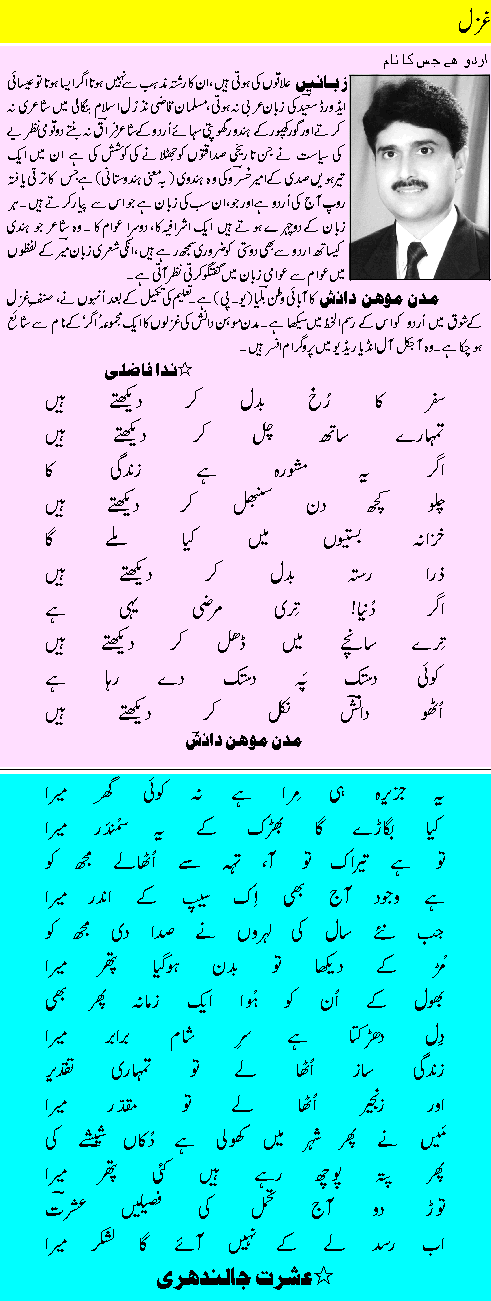 غزل
اردو ھے جس کا نام
زبانیں علاقوں کی ہوتی ہیں، ان کا رشتہ مذہب سے نہیں ہوتا اگر ایسا ہوتا تو عیسائی
ایڈورڈ سعید کی زبان عربی نہ ہوتی، مسلمان قاضی نذرل اسلام بنگالی میں شاعری نہ
کرتے اور گورکھپور کے ہندو رگھوپتی سہائے اُردو کے شاعر فراق نہ بنتے دو قومی نظریے
کی سیاست نے جن تاریخی صداقتوں کو جھٹلانے کی کوشش کی ہے ان میں ایک
تیرہویں صدی کے امیر خسرو کی وہ ہندوی (بہ معنی ہندوستانی) ہے جس کا ترقی یافتہ
روپ آج کی اُردو ہے اور جو، ان سب کی زبان ہے جو اس سے پیار کرتے ہیں۔ ہر
زبان کے دو چہرے ہوتے ہیں ایک اشرافیہ کا، دوسرا عوام کا۔ وہ شاعر جو ہندی
کیساتھ اردو سے بھی دوستی کو ضروری سمجھ رہے ہیں، انکی شعری زبان میر کے لفظوں
میں عوام سے عوامی زبان میں گفتگو کرتی نظر آتی ہے۔
مدن موہن دانش کا آبائی وطن بلیا (یو۔پی) ہے۔ تعلیم کی تکمیل کے بعد انہوں نے، صنفِ غزل
کے شوق میں اُردو کو اس کے رسم الخط میں سیکھا ہے۔ مدن موہن دانش کی غزلوں کا ایک مجموعہ 'اگر' کے نام سے شائع
ہو چکا ہے۔ وہ آجکل آل انڈیا ریڈیو میں پروگرام افسر ہیں۔
☆ندا فاضلی
سفر کا رُخ بدل کر دیکھتے ہیں
تمہارے ساتھ چل کر دیکھتے ہیں
اگر یہ مشورہ ہے زندگی کا
چلو کچھ دن سنبھل کر دیکھتے ہیں
خزانہ بستیوں میں کیا ملے گا
ذرا رستہ بدل کر دیکھتے ہیں
اگر دُنیا! تری مرضی یہی ہے
ترے سانچے میں ڈھل کر دیکھتے ہیں
کوئی دستک پہ دستک دے رہا ہے
اُٹھو دانش نکل کر دیکھتے ہیں
مدن موهن دانش
یہ جزیرہ ہی مِرا ہے نہ کوئی گھر میرا
کیا بگاڑے گا بھڑک کے یہ سمُندر میرا
تو ہے تیراک تو آ، تہہ سے اُٹھالے مجھ کو
ہے وجود آج بھی اِک سیپ کے اندر میرا
جب نئے سال کی لہروں نے صدا دی مجھ کو
مُڑ کے دیکھا تو بدن ہوگیا پتھر میرا
بھول کے اُن کو ہُوا ایک زمانہ پھر بھی
دِل دھڑکتا ہے سرِ شام برابر میرا
زندگی ساز اُٹھا لے تو تمہاری تقدیر
اور زنجیر اُٹھا لے تو مقدر میرا
میں نے پھر شہر میں کھولی ہے دُکاں شیشے کی
پھر پتہ پوچھ رہے ہیں کئی پتھر میرا
توڑ دو آج تحمّل کی فصیلیں عشرت
اب رسد لے کے نہیں آئے گا لشکر میرا
☆عشرت جالندھری